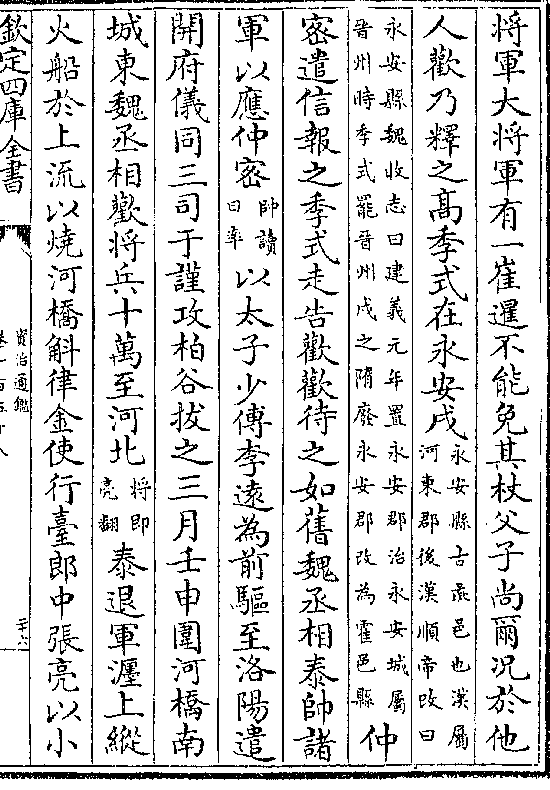 将軍大将軍有一崔暹不能免其杖父子尚爾況於他
人歡乃釋之高季式在永安戍永安縣古彘邑也漢屬河東郡後漢順帝改曰
永安縣魏收志曰建義元年置永安郡治永安城屬晉州時季式罷晉州戍之隋廢永安郡改為霍邑縣仲
密遣信報之季式走告歡歡待之如舊魏丞相泰帥諸
軍以應仲密帥讀曰率以太子少傅李遠為前驅至洛陽遣
開府儀同三司于謹攻柏谷拔之三月壬申圍河橋南
城東魏丞相歡将兵十萬至河北将即亮翻泰退軍瀍上縱
火船於上流以燒河橋斛律金使行臺郎中張亮以小
欽定四庫全書
資治通鑑